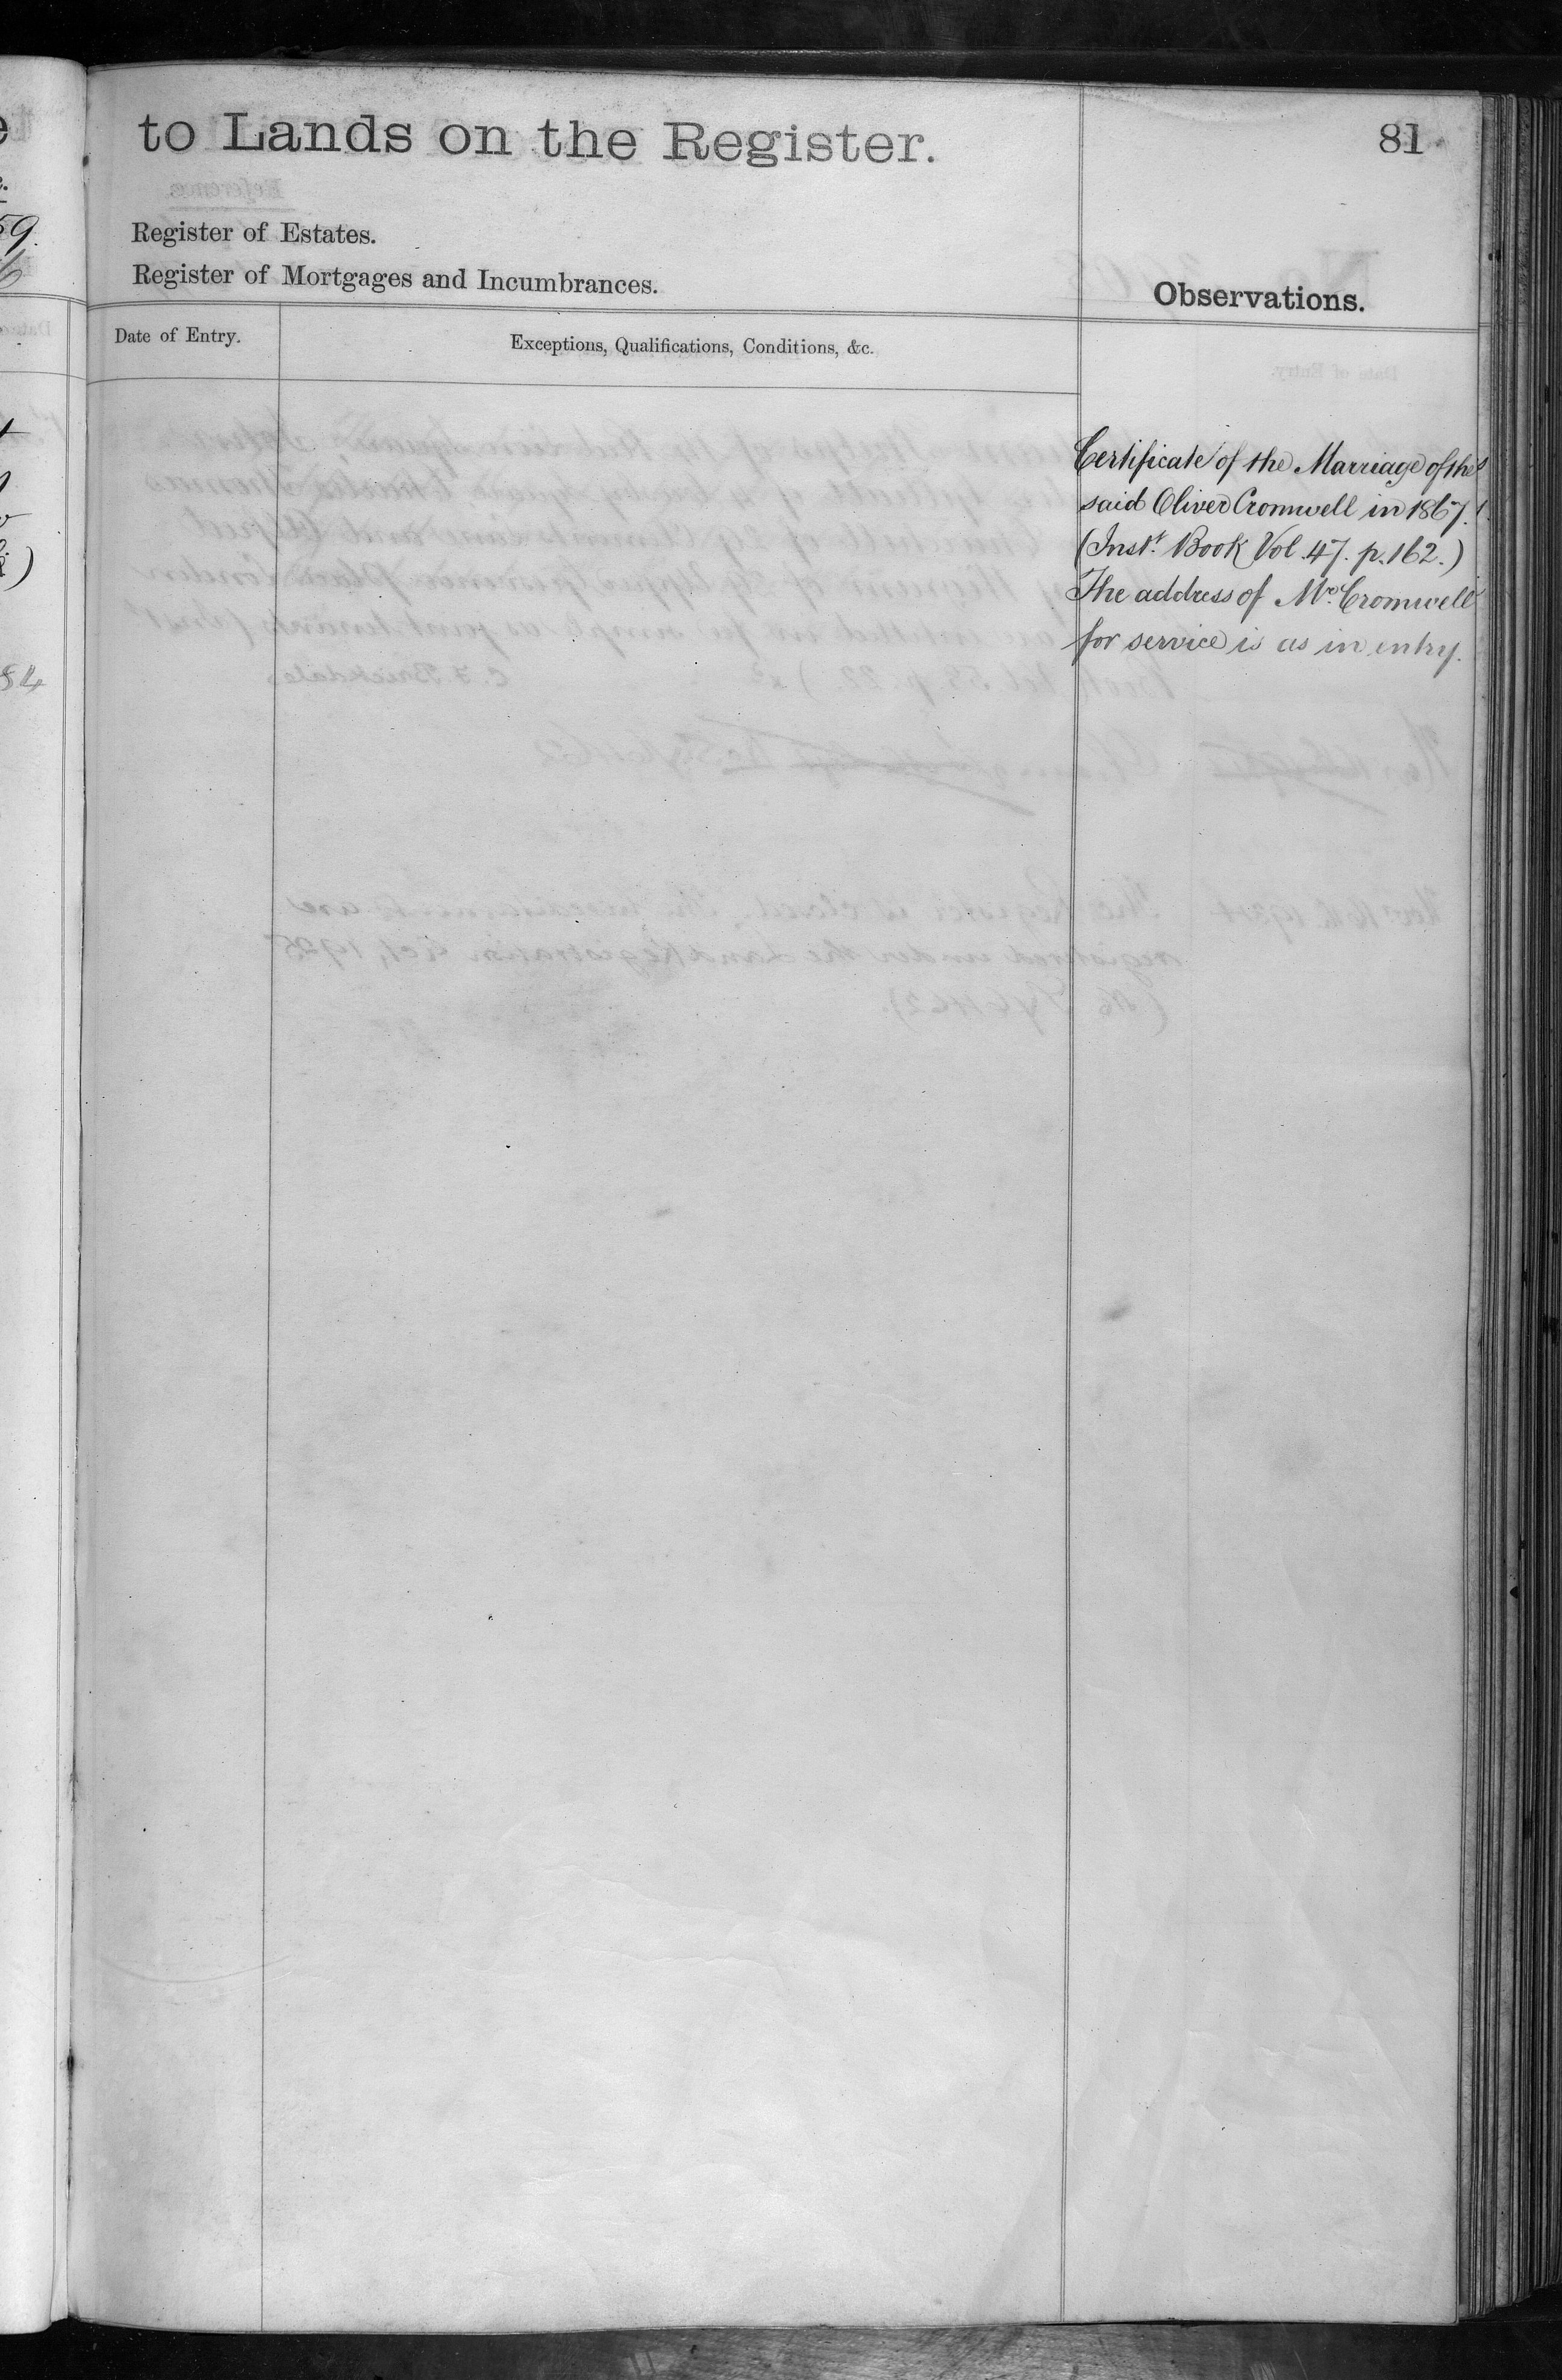 to Lands on the Register.
81
Register of Estates.
Register of Mortgages and Incumbrances.
Observations.
Date of Entry.
Exceptions, Qualifications, Conditions, &c.
Certificate of the Marriage of the
said Oliver Cromwell in 1867.
(Inst. Book Vol. 47. p. 162.)
The address of Mrs. Cromwell
for service is as in entry.